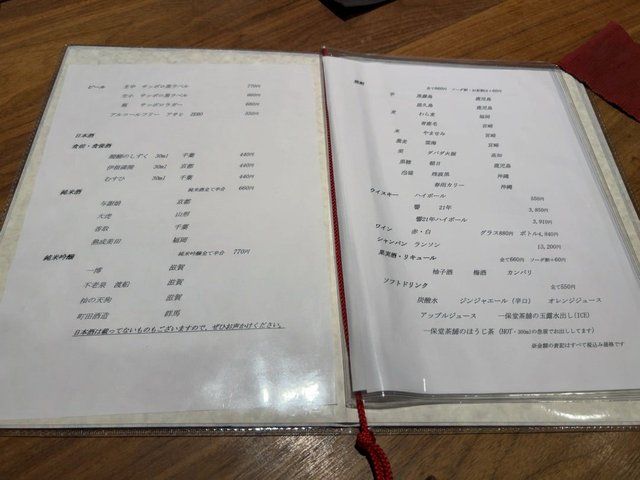 ビール 生中 サッポロ黒ラベル 770円
生小 サッポロ黒ラベル 660円
瓶 サッポロラガー
アルコールフリー アサヒ ZERO 550円
日本酒
食前・食後酒
醍醐のしずく 30ml 千葉 440円
伊根満開 30ml 京都 440円
むすひ 30ml 千葉 440円
純米酒 純米酒全て半合 660円
与謝娘 京都
大虎 山形
香取 千葉
熟成美田 福岡
純米吟醸 純米吟醸全て半合 770円
一博 滋賀
不老泉 渡船 滋賀
柚の天狗 滋賀
町田酒造 群馬
日本酒は載ってないものもございますので、ぜひお声かけください。
焼酎 全て660円 ソーダ割・お茶割は+60円
芋 黒霧島 鹿児島
鹿児島
麦 わら麦 福岡
青鹿毛 宮崎
米 やませみ
蕎麦 雲海 宮崎
栗 ダバダ火振 高知
黒糖 朝日 鹿児島
泡盛 残波黒 沖縄
春雨カリー 沖縄
ウイスキー ハイボール 550円
響 21年 3,850円
響21年ハイボール 3,910円
ワイン 赤・白 グラス880円 ボトル4,840円
シャンパン ランソン 13,200円
果実酒・リキュール 全て660円 ソーダ割+60円
柚子酒 梅酒 カンパリ
ソフトドリンク 全て550円
炭酸水 ジンジャエール(辛口) オレンジジュース
アップルジュース 一保堂茶舗の玉露水出し(ICE)
一保堂茶舗のほうじ茶(HOT・300mlの急須でお出ししてます)
※金額の表記はすべて税込み価格です